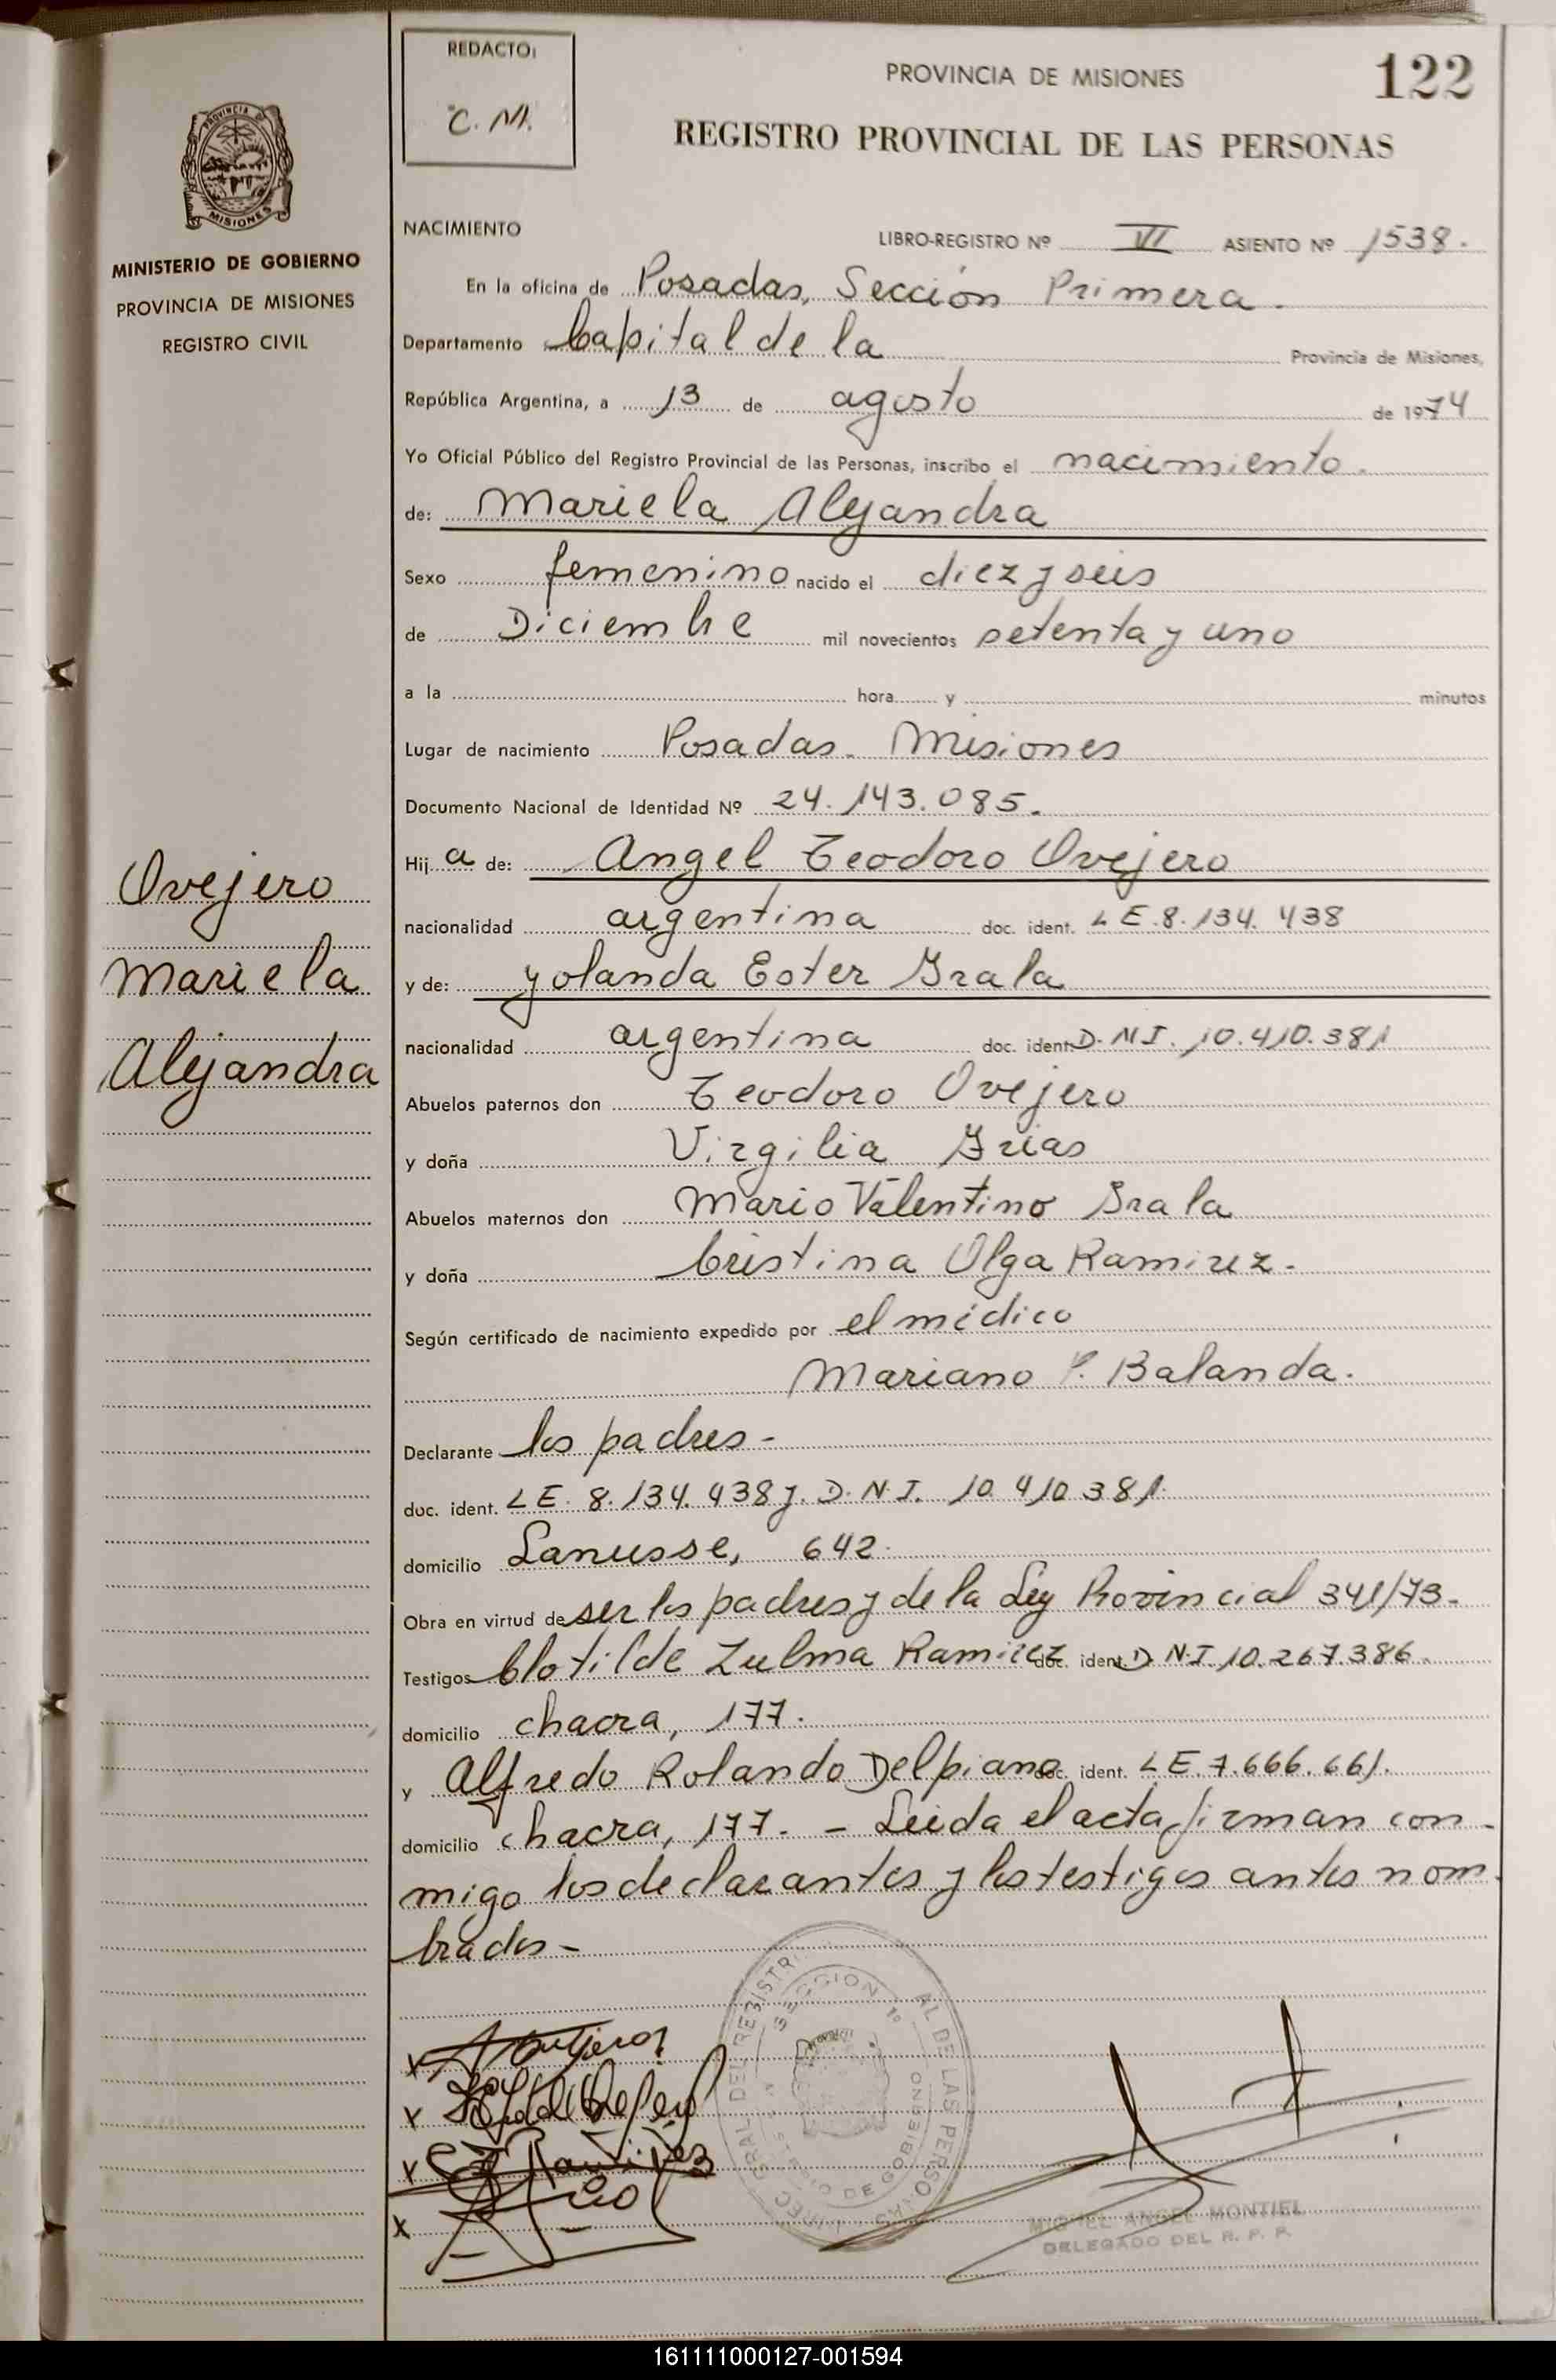 REDACTO:
C. M.
PROVINCIA DE MISIONES
122
REGISTRO PROVINCIAL DE LAS PERSONAS
PROVINCIA DE
MISIONES
MINISTERIO DE GOBIERNO
PROVINCIA DE MISIONES
REGISTRO CIVIL
NACIMIENTO
LIBRO-REGISTRO Nº VI ASIENTO Nº 1538.
En la oficina de Posadas, Sección Primera.
Departamento Capital de la Provincia de Misiones,
República Argentina, a 13 de agosto de 1974
Yo Oficial Público del Registro Provincial de las Personas, inscribo el nacimiento.
de: Mariela Alejandra
Sexo femenino nacido el diez y seis
de Diciembre mil novecientos setenta y uno
a la hora y minutos
Lugar de nacimiento Posadas. Misiones
Documento Nacional de Identidad Nº 24.143.085.
Hij a de: Angel Teodoro Ovejero
nacionalidad argentina doc. ident. L E.8.134.438
y de: Yolanda Ester Grala
nacionalidad argentina doc. ident. D.N.I. 10.410.381
Abuelos paternos don Teodoro Ovejero
y doña Virgilia
Abuelos maternos don Mario Valentino Grala
y doña Cristina Olga Ramirez.
Según certificado de nacimiento expedido por el médico
Mariano P. Balanda.
Declarante los padres-
doc. ident. LE. 8.134.438 y. D.N.I. 10 410 381.
domicilio Lanusse, 642.
Obra en virtud de ser los padres y de la Ley Provincial 341/73.
Testigos Clotilde Zulma Ramirez doc. ident. D N.I 10.267.386.
domicilio chacra, 177.
y Alfredo Rolando Delpiano doc. ident. LE.7.666.661.
domicilio chacra, 177. - Leida el acta, firman con-
migo los declarantes y los testigos antes nom-
brados-
Ovejero
Mariela
Alejandra
SECCION 1º
MIGUEL ANGEL MONTIEL
DELEGADO DEL R. P. P.
161111000127-001594